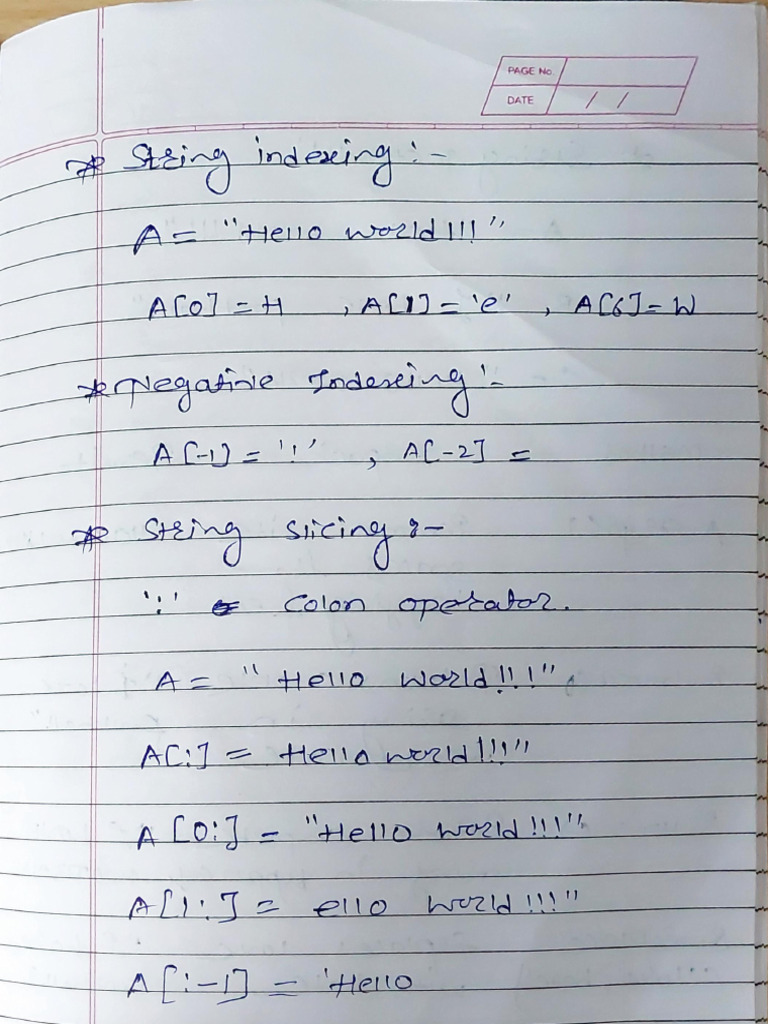 PAGE No.
DATE / /
* String indexing :-
A = "Hello world!!!"
A[0] = H , A[1] = 'e' , A[6] = W
* Negative Indexing :-
A[-1] = '!' , A[-2] =
* String Slicing :-
':' Colon operator.
A = "Hello world!!!"
A[:] = Hello world!!!"
A[0:] = "Hello world!!!"
A[1:] = ello world!!!"
A[:-1] = 'Hello